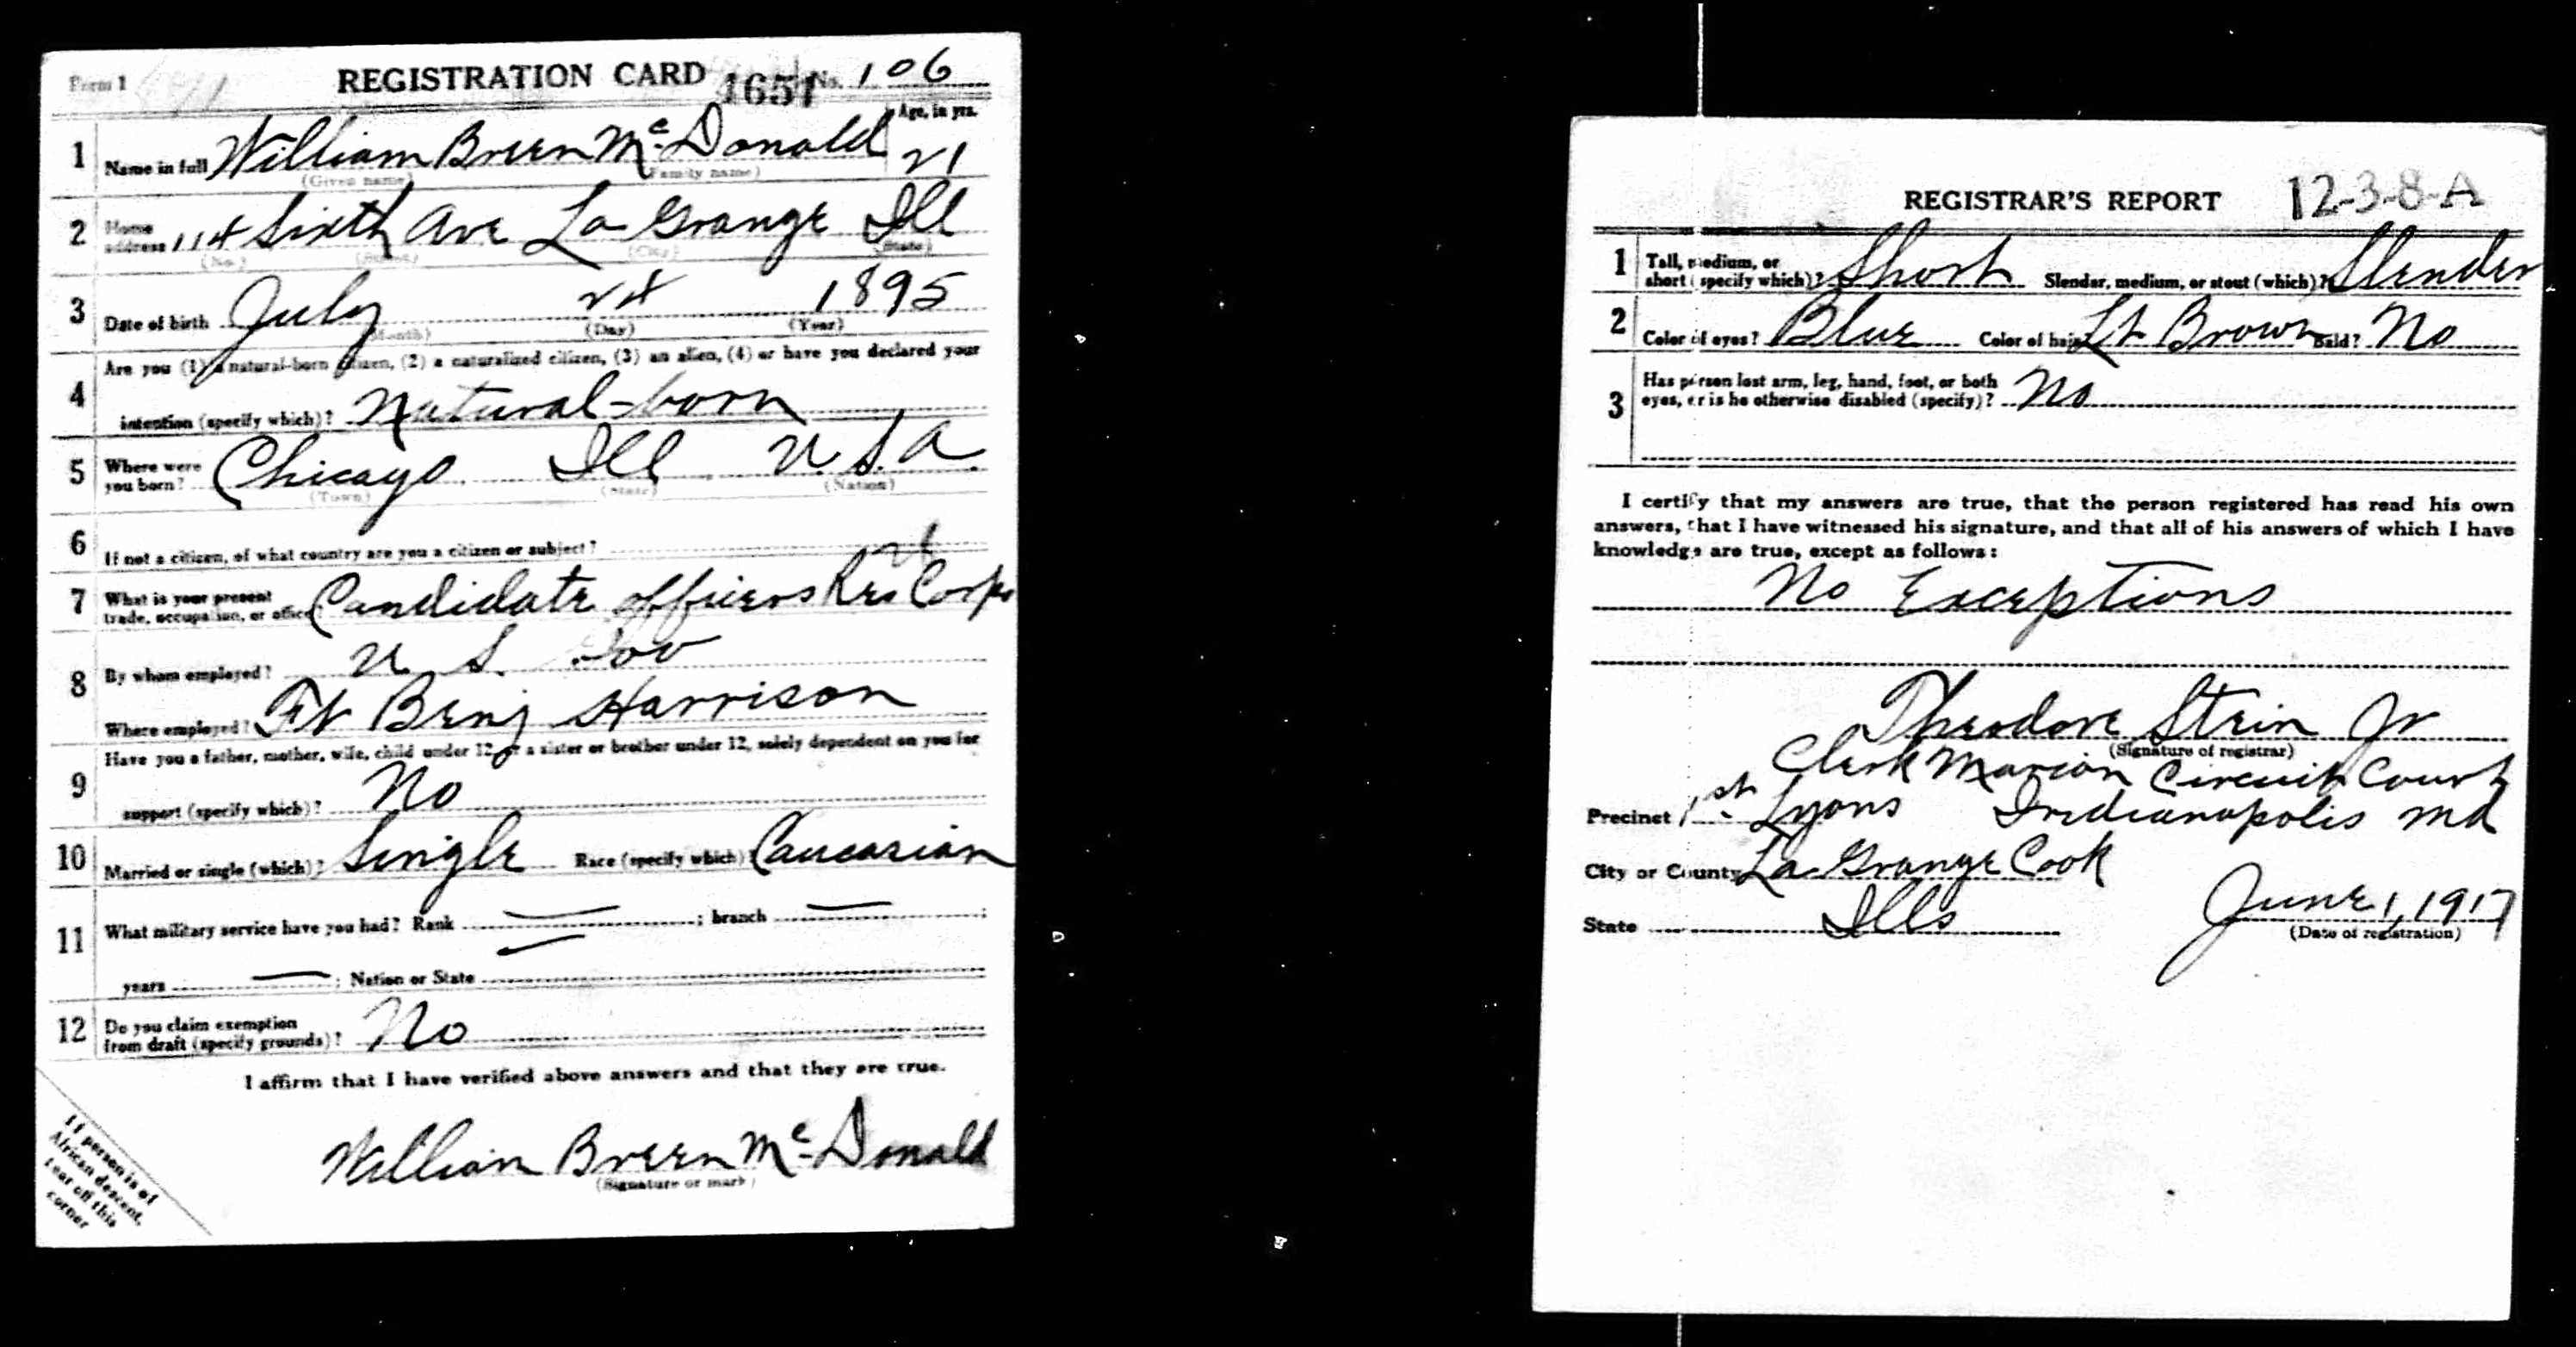 Form 1
REGISTRATION CARD 1651 No. 106
Age, in yrs.
1 Name in full William Breen McDonald 21
(Given name) (Family name)
2 Home address 114 Sixth Ave La Grange Ill
(No.) (Street) (City) (State)
3 Date of birth July 24 1895
(Month) (Day) (Year)
Are you (1) a natural-born citizen, (2) a naturalized citizen, (3) an alien, (4) or have you declared your
4 intention (specify which)? Natural-born
5 Where were you born? Chicago Ill U.S.A.
(Town) (State) (Nation)
6 If not a citizen, of what country are you a citizen or subject?
7 What is your present trade, occupation, or office? Candidate officers Res Corps
8 By whom employed? U S Gov
Where employed? Ft Benj Harrison
Have you a father, mother, wife, child under 12, or a sister or brother under 12, solely dependent on you for
9 support (specify which)? No
10 Married or single (which)? Single Race (specify which)? Caucasian
11 What military service have you had? Rank — ; branch — ;
years — ; Nation or State —
12 Do you claim exemption from draft (specify grounds)? No
I affirm that I have verified above answers and that they are true.
William Breen McDonald
(Signature or mark)
If person is of
African descent,
tear off this
corner
REGISTRAR'S REPORT 12-3-8-A
1 Tall, medium, or short (specify which)? Short Slender, medium, or stout (which)? Slender
2 Color of eyes? Blue Color of hair? Lt Brown Bald? No
3 Has person lost arm, leg, hand, foot, or both
eyes, or is he otherwise disabled (specify)? No
I certify that my answers are true, that the person registered has read his own
answers, that I have witnessed his signature, and that all of his answers of which I have
knowledge are true, except as follows:
No Exceptions
Theodore Stein Jr
(Signature of registrar)
Clerk Marion Circuit Court
Precinct 1st Lyons Indianapolis Ind
City or County La Grange Cook
State Ills June 1, 1917
(Date of registration)